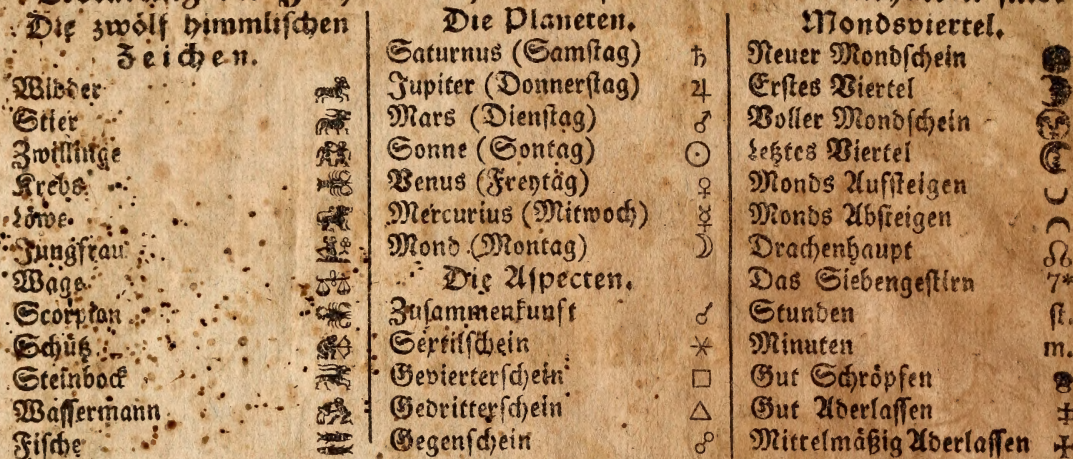 Die zwölf himmlischen
Zeichen.
Widder
Stier
Zwillinge
Krebs
Löwe
Jungfrau
Wage
Scorpion
Schütz
Steinbock
Wassermann
Fische
Die Planeten.
Saturnus (Samstag) ♄
Jupiter (Donnerstag) ♃
Mars (Dienstag) ♂
Sonne (Sontag) ☉
Venus (Freytäg) ♀
Mercurius (Mitwoch) ☿
Mond (Montag) ☽
Die Aspecten.
Zusammenkunft ☌
Sextilschein ⚹
Gevierterschein □
Gedritterschein △
Gegenschein ☍
Mondsviertel.
Neuer Mondschein
Erstes Viertel
Voller Mondschein
Letztes Viertel
Monds Aufsteigen
Monds Absteigen
Drachenhaupt ☊
Das Siebengestirn 7*
Stunden st.
Minuten m.
Gut Schröpfen
Gut Aderlassen
Mittelmäßig Aderlassen